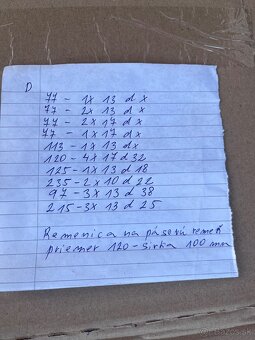 D
77 - 1x 13 d x
77 - 2x 13 d x
77 - 2x 17 d x
77 - 1x17 dx
113 - 1x13 dx
120 - 4x17 d32
125 - 1x13 d 18
235 - 2x10 d 22
97 - 3x13 d 38
215 - 3x 13 d 25
Remenica na pásový remeň
priemer 120 - širka 100 mm